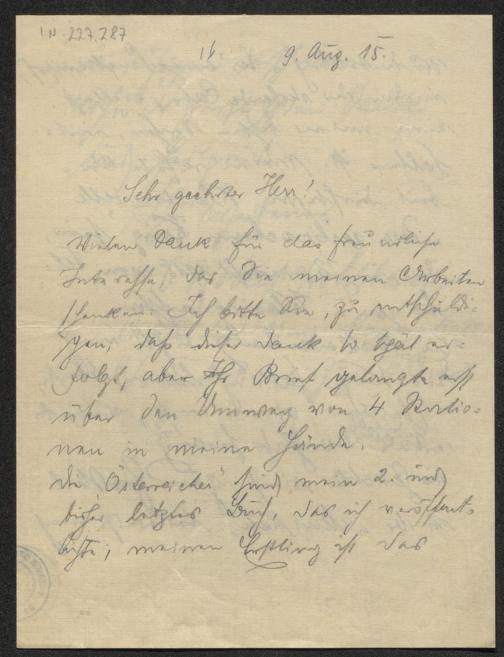 IN. 227.287
9. Aug. 15.
Sehr geehrter Herr!
Vielen Dank für das freundliche
Interesse, das Sie meinen Arbeiten
schenken. Ich bitte Sie, zu entschuldi-
gen, daß dieser Dank so spät er-
folgt, aber Ihr Brief gelangte erst
über den Umweg von 4 Statio-
nen in meine Hände.
Die "Österreicher" sind mein 2. und
bisher letztes Buch, das ich veröffent-
lichte, meinen Erstling ist das